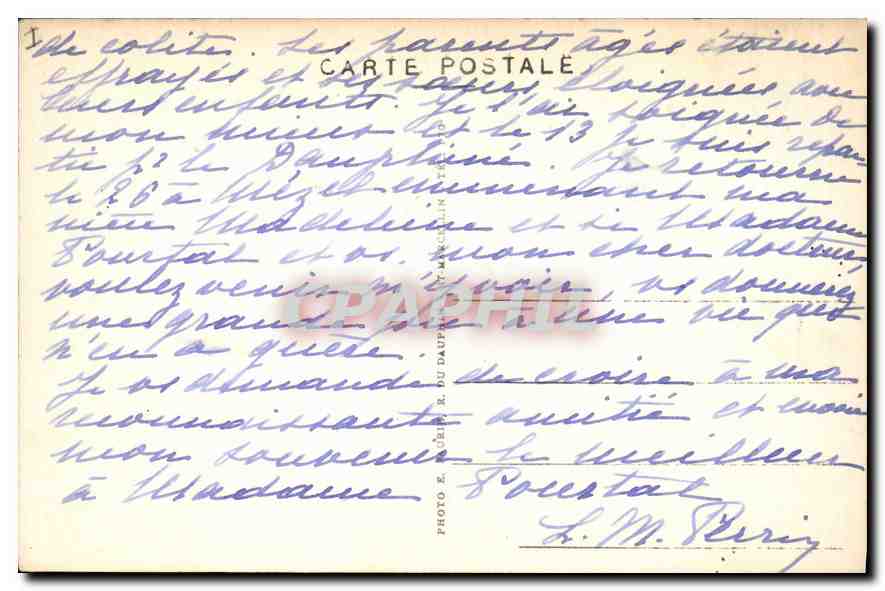 I
de colite. Ses parents âgés étaient
CARTE POSTALE
effrayés et les sœurs éloignées avec
leurs enfants. Je l'ai soignée de
mon mieux et le 13 je suis repar-
tie pr le Dauphiné. Je retourne
le 26 à Mézel emmenant ma
nièce Madeleine et si Madame
Pourtal et vs. mon cher docteur,
voulez venir m'y voir, vs donnerez
une grande joie à une vie qui
n'en a guère.
Je vs demande de croire à ma
reconnaissante amitié et envoie
mon souvenir le meilleur
à Madame Pourtal
L. M. Perrin
PHOTO E. R. DU DAUPHINÉ ST-MARCELLIN TÉL.
CPAPHIL